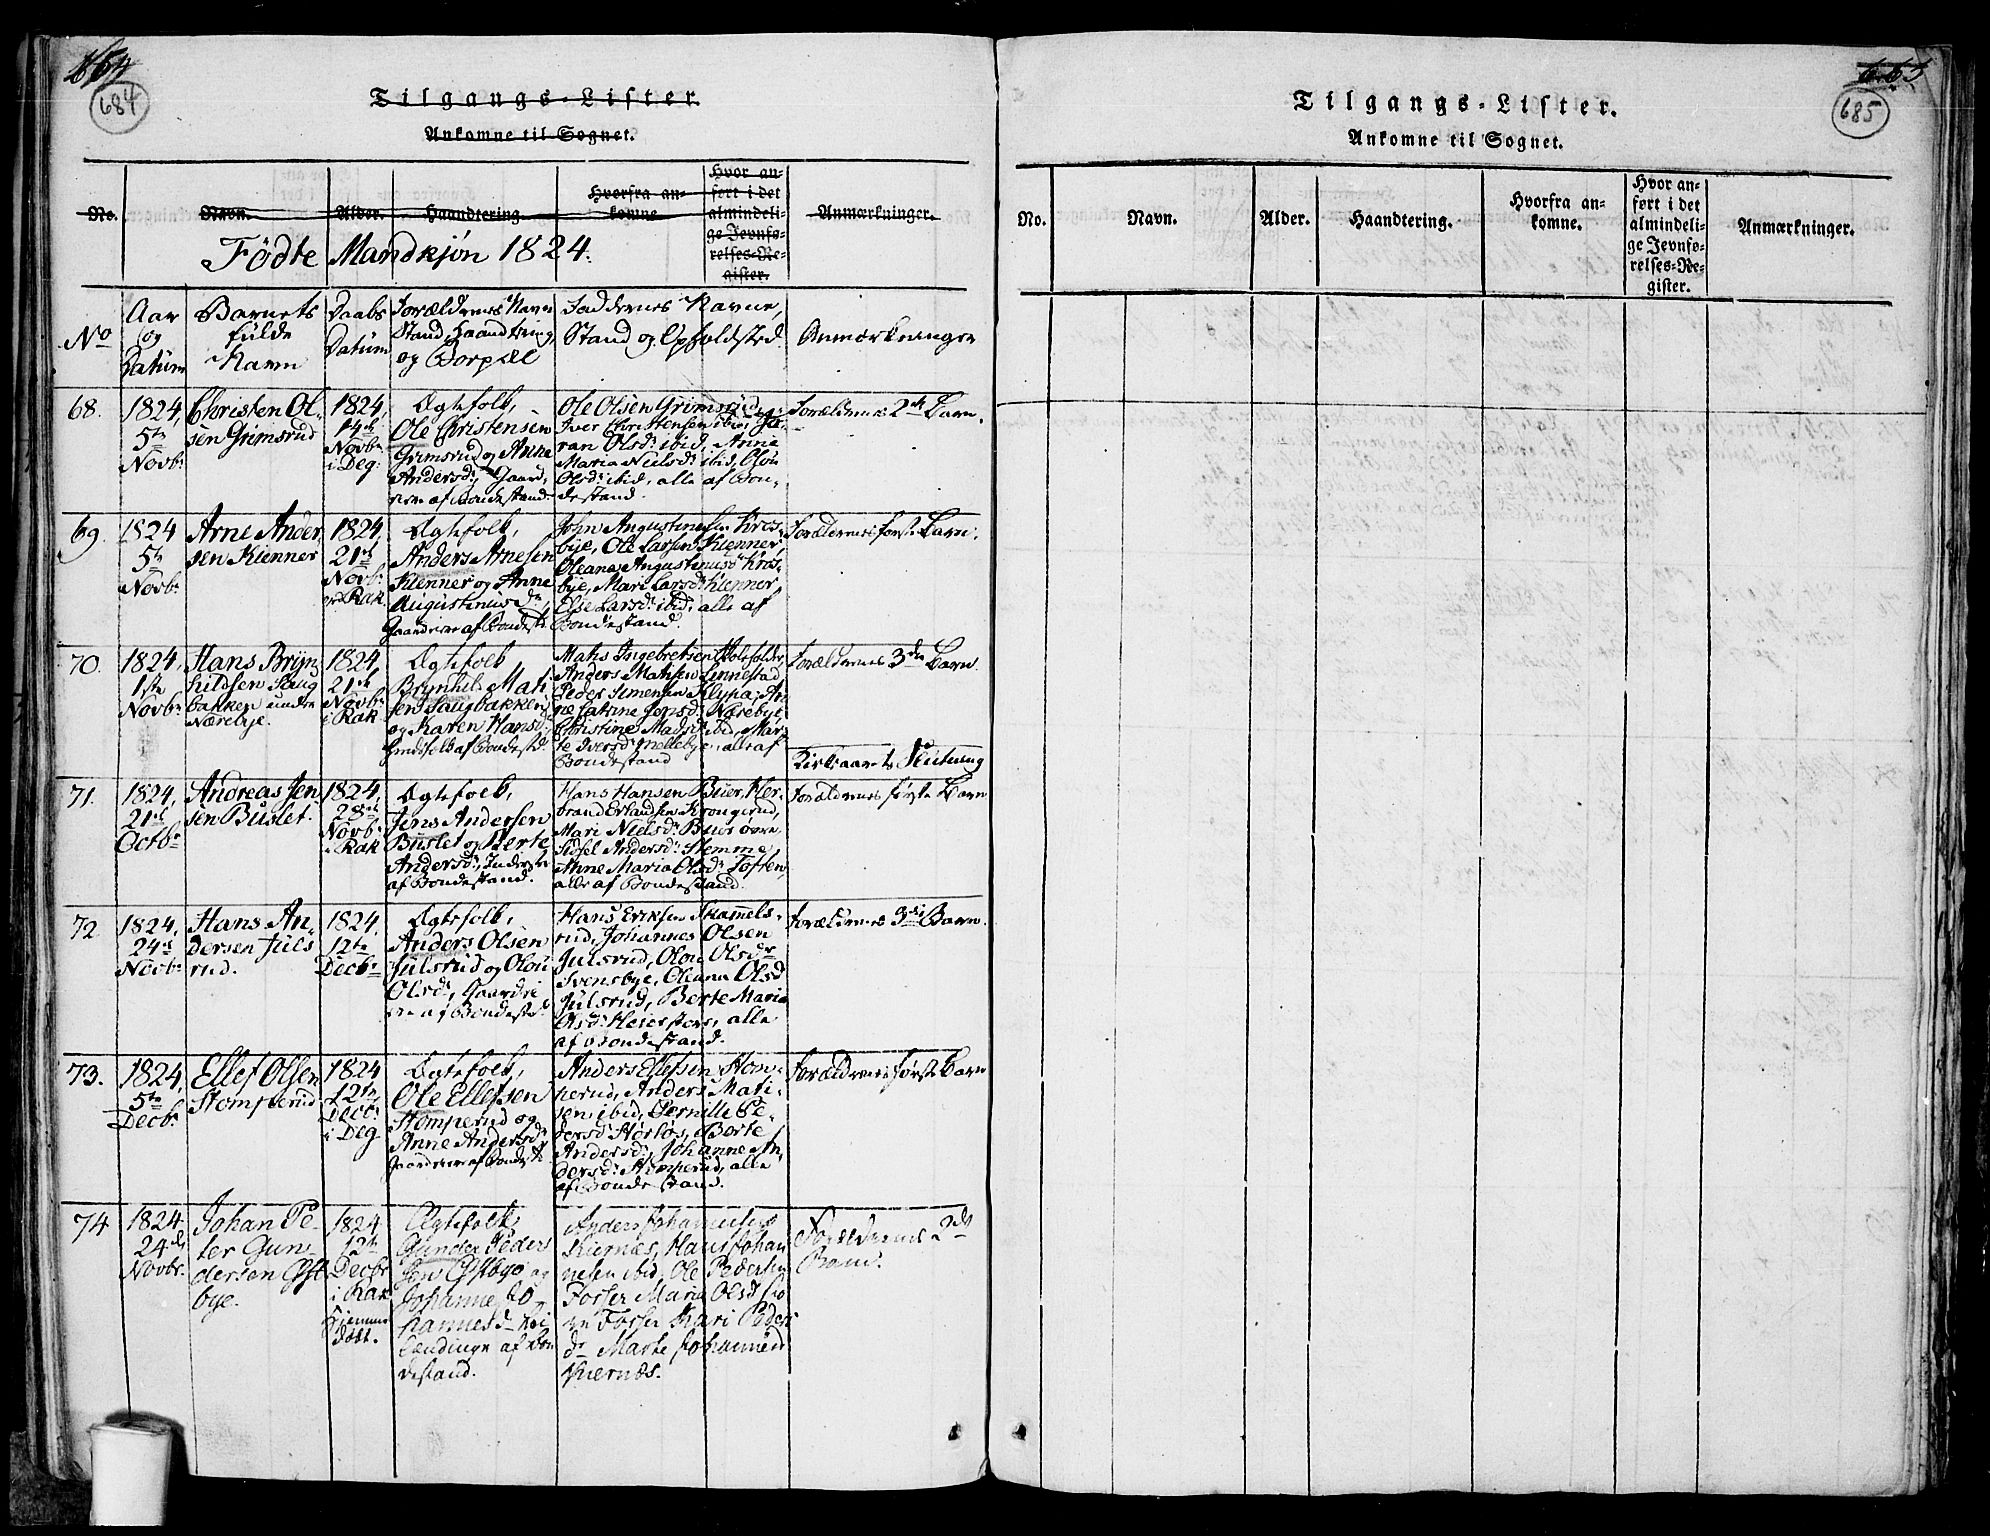 684
Tilgangs-Lister.
Ankomne til Sognet.
No.
Navn.
Alder.
Haandtering.
Hvorfra an-
komne
Hvor an-
ført i det
almindeli-
ge Jevnfø-
relses-Re-
gister.
Anmærkninger.
Födte Mandkjøn 1824.
No
Aar
og
Datum
Barnets
fulde
Navn
Daabs
Datum
Forældrenes Navn
Stand, Haandtering
og Bopæl
Faddernes Navne,
Stand og Opholdsted.
Anmærkninger
68.
1824,
5te
Novbr
Christen Ol-
sen Grimsrud
1824,
14de
Novbr
i Deg:
Ægtefolk,
Ole Christensen
Grimsrud og Anna
Andersdr, Gaard,
af Bondestand.
Ole Olsen Grimsrud,
Iver Christensen ibid,
ran Olsdr ibid, Anne
Maria Nielsdr ibid, Olou
Olsdr ibid, alle af Bon-
destand.
Forældrenes 2det Barn.
69.
1824
5te
Novbr
Arne Ander
sen Kienner
1824,
21de
Novbr
Rak
Ægtefolk,
Anders Arnesen
Kienner og Anne
Augustinusdr,
Gaardner af Bondest
John Augustinusen Kros-
bye, Ole Larsen Kienner,
Oleana Augustinusdr Kros-
bye, Mari Larsdr Kienner,
Else Larsdr ibid, alle af
Bondestand.
Forældrenes første Barn.
70.
1824,
1ste
Novbr
Hans Bryn-
hildsen Saug
bakken under
Nærebye.
1824,
21de
Novbr
i Rak
Ægtefolk
Brynhild Mati
sen Saugbakken
og Karen Hansdr,
af Bondestd.
Matis Ingebretsen
Anders Matisen Linnestad
Peder Simensen Klypa, An-
ne Catrine Jensdr Nærebye,
Christine Madsdr ibid, Mar-
te Iversdr Mellebye, alle af
Bondestand
Forældrenes 3die Barn.
Kirkeaarets Slutning
71.
1824,
21de
Octbr
Andreas Jen
sen Buslet.
1824,
28de
Novbr
i Rak
Ægtefolk,
Jens Andersen
Buslet og Berte
Andersdr, Inderster
af Bondestand.
Hans Hansen Buer, Her-
brand Erlandsen Krongerud,
Mari Nielsdr Buer øvre
Sidsel Andersdr Stemme,
Anne Maria Olsdr Toften,
alle af Bondestand.
Forældrenes første Barn
72.
1824,
24de
Novbr
Hans An-
dersen Juls
rud.
1824,
12te
Decbr
Ægtefolk,
Anders Olsen
Julsrud og Olou
Olsdr, Gaardri
ere af Bondestd.
Hans Eriksen Skammels-
rud, Johannes Olsen
Julsrud, Olou Olsdr
Svensbye, Oleana Olsd
Julsrud, Berte Maria
Olsdr Heiersteen, alle
af Bondestand.
Forældrenes 3die Barn.
73.
1824,
5te
Decbr
Ellef Olsen
Stomperud
1824
12te
Decbr
i Deg
Ægtefolk,
Ole Ellefsen
Stomperud og
Anne Andersdr
af Bondest.
Anders Ellefsen Stom-
perud, Anders Mati-
sen ibid, Pernille Pe-
dersdr Hørløs, Berte
Andersdr, Johanne An-
dersdr Stomperud, alle
af Bondestand.
Forældrenes første Barn
74
1824
24de
Novbr.
Johan Pe-
ter Gun-
dersen Østbye
1824
12te
Decbr
i Rak
Hjemme
døbt.
Ægtefolk
Gunder Peders
sen Østbye og
Johanne Jo
hannesd
af Bon
destand.
Anders Johannesen
Kiernæs, Hans Johan
nesen ibid, Ole Pedersen
Fosser Marie Olsd
Fosser Kari Peders
dr Marte Johannesd
Kiernæs.
Forældrenes 2det
Barn.
685
Tilgangs-Lister.
Ankomne til Sognet.
No.
Navn.
Alder.
Haandtering.
Hvorfra an-
komne.
Hvor an-
ført i det
almindeli-
ge Jevnfø-
relses-Re-
gister.
Anmærkninger.